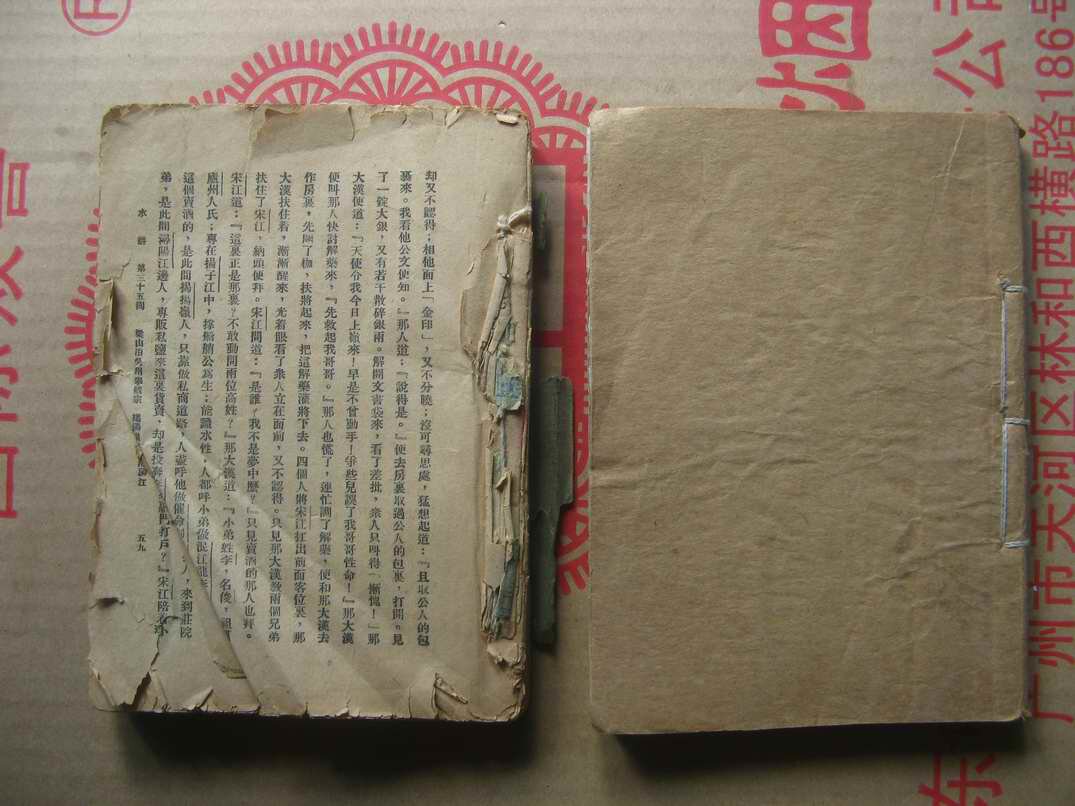 却又不認得；相他面上「金印」，又不分曉；沒可尋思處，猛想起道：『且取公人的包
裹來。我看他公文便知。』那人道：『說得是。』便去房裏取過公人的包裹，打開。見
了一錠大銀，又有若干散碎銀兩。解開文書袋來，看了差批，衆人只叫得『慚愧！』那
大漢便道：『天使令我今日上嶺來！早是不曾動手！爭些兒誤了我哥哥性命！』那大漢
便叫那人快討解藥來，『先救起我哥哥。』那人也慌了，連忙調了解藥，便和那大漢去
作房裏，先開了枷，扶將起來，把這解藥灌將下去。四個人將宋江扛出前面客位裏，那
大漢扶住着，漸漸醒來，光着眼看了衆人立在面前，又不認得。只見那大漢教兩個兄弟
扶住了宋江，納頭便拜。宋江問道：『是誰？我不是夢中麽？』只見賣酒的那人也拜。
宋江道：『這裏正是那裏？不敢動問兩位高姓？』那大漢道：『小弟姓李，名俊，祖
廬州人氏；專在揚子江中，撐船艄公爲生；能識水性；人都呼小弟做混江龍李
這個賣酒的，是此間揭陽嶺人，只靠做私商道路，人盡呼他做催命判 人，來到莊院
弟，是此間潯陽江邊人，專販私鹽來這裏貨賣，却是投奔 打戶？』宋江陪着小
水滸 第三十五回 梁山泊吳用舉戴宗 揭陽嶺 江 五九
烟
公司
广州市天河区林和西横路186号
东